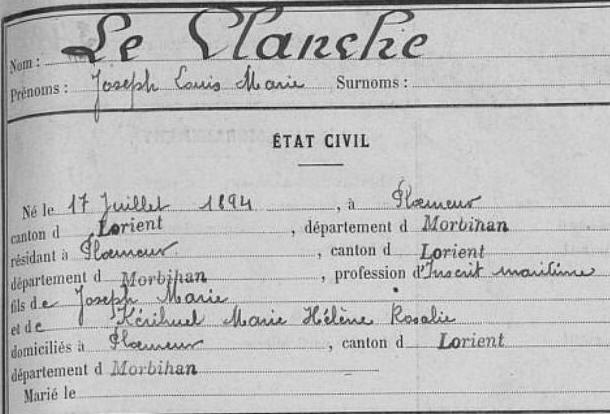 Nom : Le Planche
Prénoms : Joseph Louis Marie Surnoms :
ÉTAT CIVIL
Né le 17 Juillet 1894, à Ploemeur
canton d Lorient, département d Morbihan
résidant à Ploemeur, canton d Lorient
département d Morbihan, profession d'Inscrit maritime
fils de Joseph Marie
et de Kérihuel Marie Hélène Rosalie
domiciliés à Ploemeur, canton d Lorient
département d Morbihan
Marié le